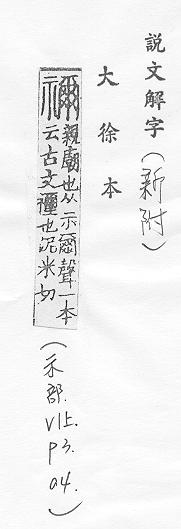 説文解字(新附)
大徐本
禰 親廟也从示爾聲一本
云古文禰也泥米切
(示部.V1上.P3.04.)